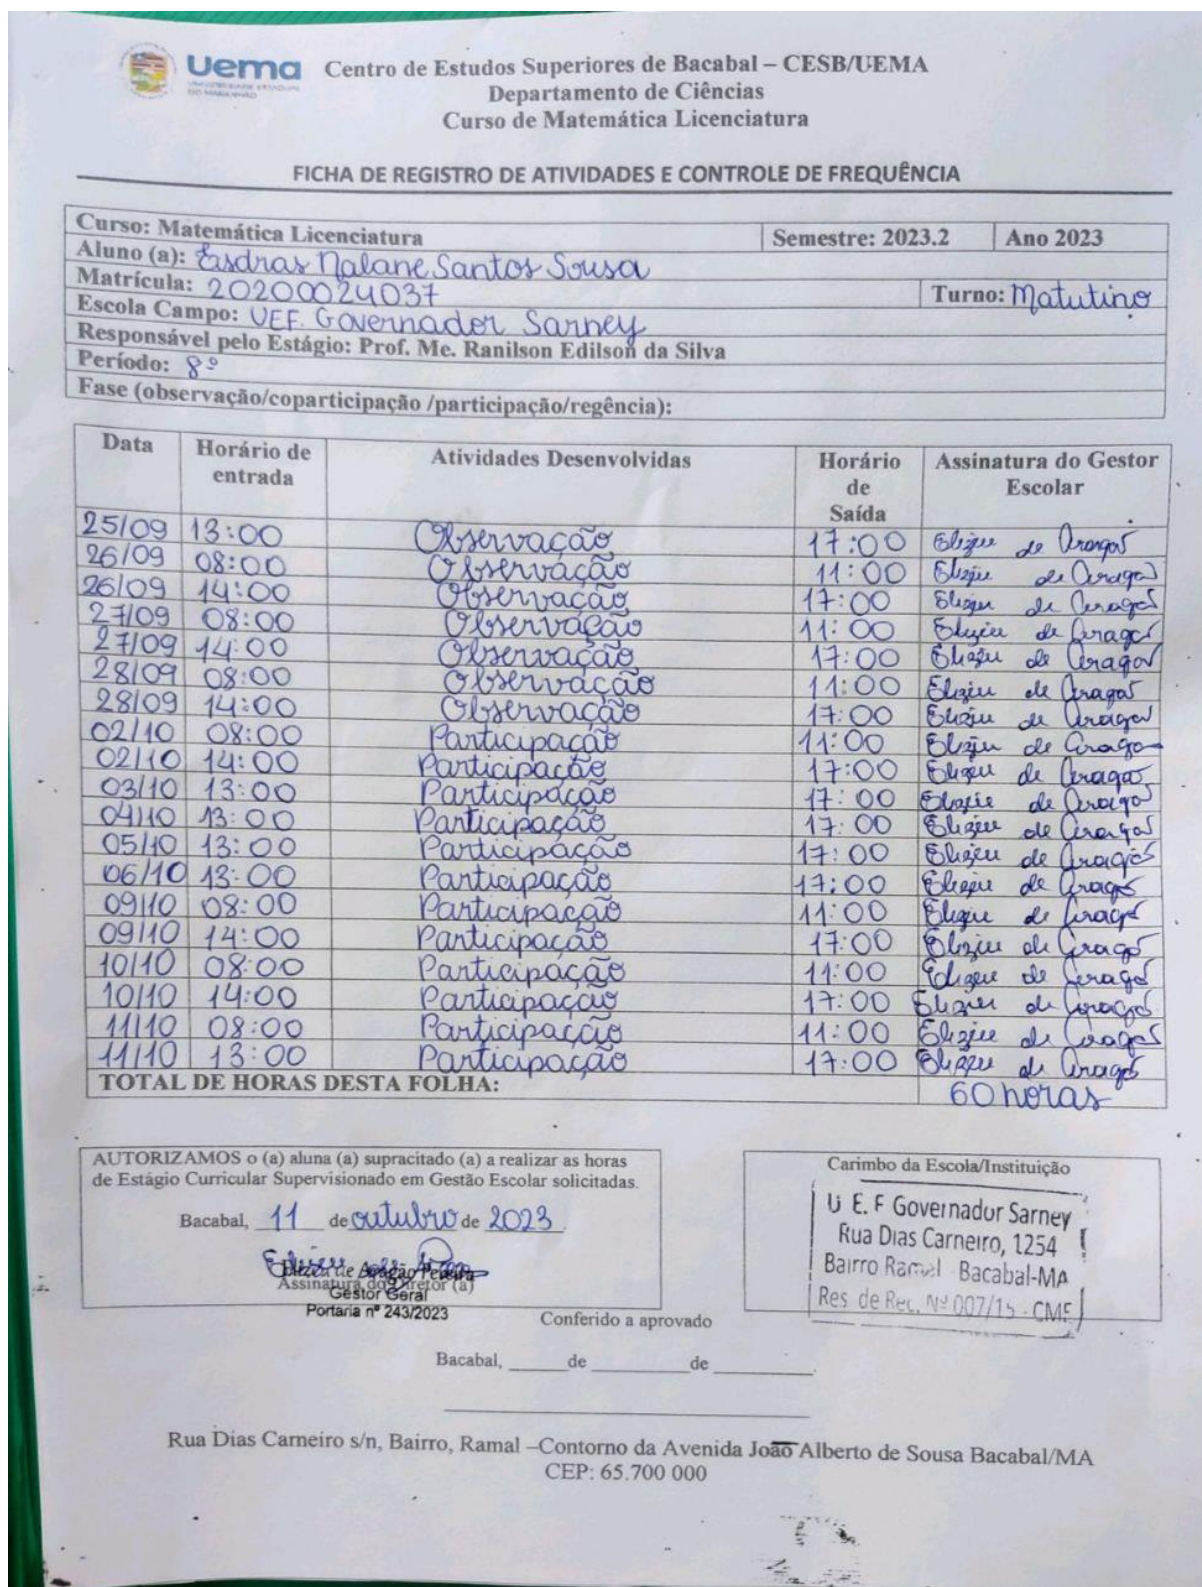 Uema Centro de Estudos Superiores de Bacabal – CESB/UEMA
UNIVERSIDADE ESTADUAL
DO MARANHÃO
Departamento de Ciências
Curso de Matemática Licenciatura
FICHA DE REGISTRO DE ATIVIDADES E CONTROLE DE FREQUÊNCIA
Curso: Matemática Licenciatura Semestre: 2023.2 Ano 2023
Aluno (a): Esdras Nalane Santos Sousa
Matrícula: 20200024037 Turno: Matutino
Escola Campo: UEF. Governador Sarney
Responsável pelo Estágio: Prof. Me. Ranilson Edilson da Silva
Período: 8º
Fase (observação/coparticipação /participação/regência):
Data Horário de entrada Atividades Desenvolvidas Horário de Saída Assinatura do Gestor Escolar
25/09 13:00 Observação 17:00 Elizeu de Aragão
26/09 08:00 Observação 11:00 Elizeu de Aragão
26/09 14:00 Observação 17:00 Elizeu de Aragão
27/09 08:00 Observação 11:00 Elizeu de Aragão
27/09 14:00 Observação 17:00 Elizeu de Aragão
28/09 08:00 Observação 11:00 Elizeu de Aragão
28/09 14:00 Observação 17:00 Elizeu de Aragão
02/10 08:00 Participação 11:00 Elizeu de Aragão
02/10 14:00 Participação 17:00 Elizeu de Aragão
03/10 13:00 Participação 17:00 Elizeu de Aragão
04/10 13:00 Participação 17:00 Elizeu de Aragão
05/10 13:00 Participação 17:00 Elizeu de Aragão
06/10 13:00 Participação 17:00 Elizeu de Aragão
09/10 08:00 Participação 11:00 Elizeu de Aragão
09/10 14:00 Participação 17:00 Elizeu de Aragão
10/10 08:00 Participação 11:00 Elizeu de Aragão
10/10 14:00 Participação 17:00 Elizeu de Aragão
11/10 08:00 Participação 11:00 Elizeu de Aragão
11/10 13:00 Participação 17:00 Elizeu de Aragão
TOTAL DE HORAS DESTA FOLHA: 60 horas
AUTORIZAMOS o (a) aluna (a) supracitado (a) a realizar as horas
de Estágio Curricular Supervisionado em Gestão Escolar solicitadas.
Bacabal, 11 de outubro de 2023
Elizeu de Aragão Pereira
Assinatura do Diretor (a)
Gestor Geral
Portaria nº 243/2023
Carimbo da Escola/Instituição
U E. F Governador Sarney
Rua Dias Carneiro, 1254
Bairro Ramal - Bacabal-MA
Res. de Rec. Nº 007/15 - CME
Conferido a aprovado
Bacabal, ______de __________de __________.
Rua Dias Carneiro s/n, Bairro, Ramal –Contorno da Avenida João Alberto de Sousa Bacabal/MA
CEP: 65.700 000